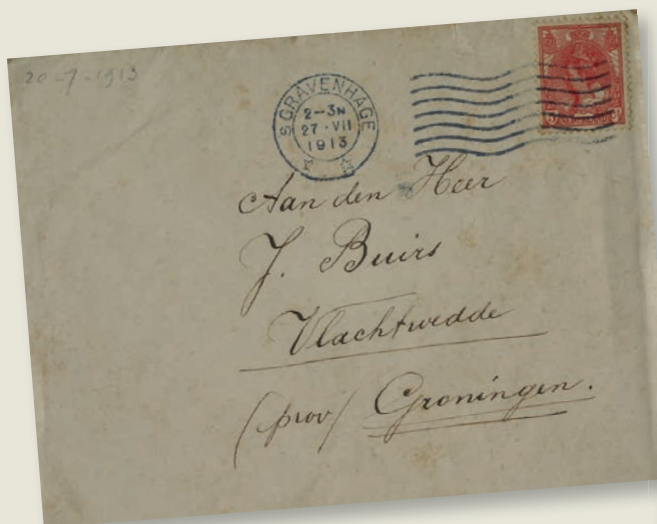 20-7-1913
'SGRAVENHAGE
2-3N
27·VII
1913
Aan den Heer
J. Buirs
Vlachtwedde
(prov) Groningen.